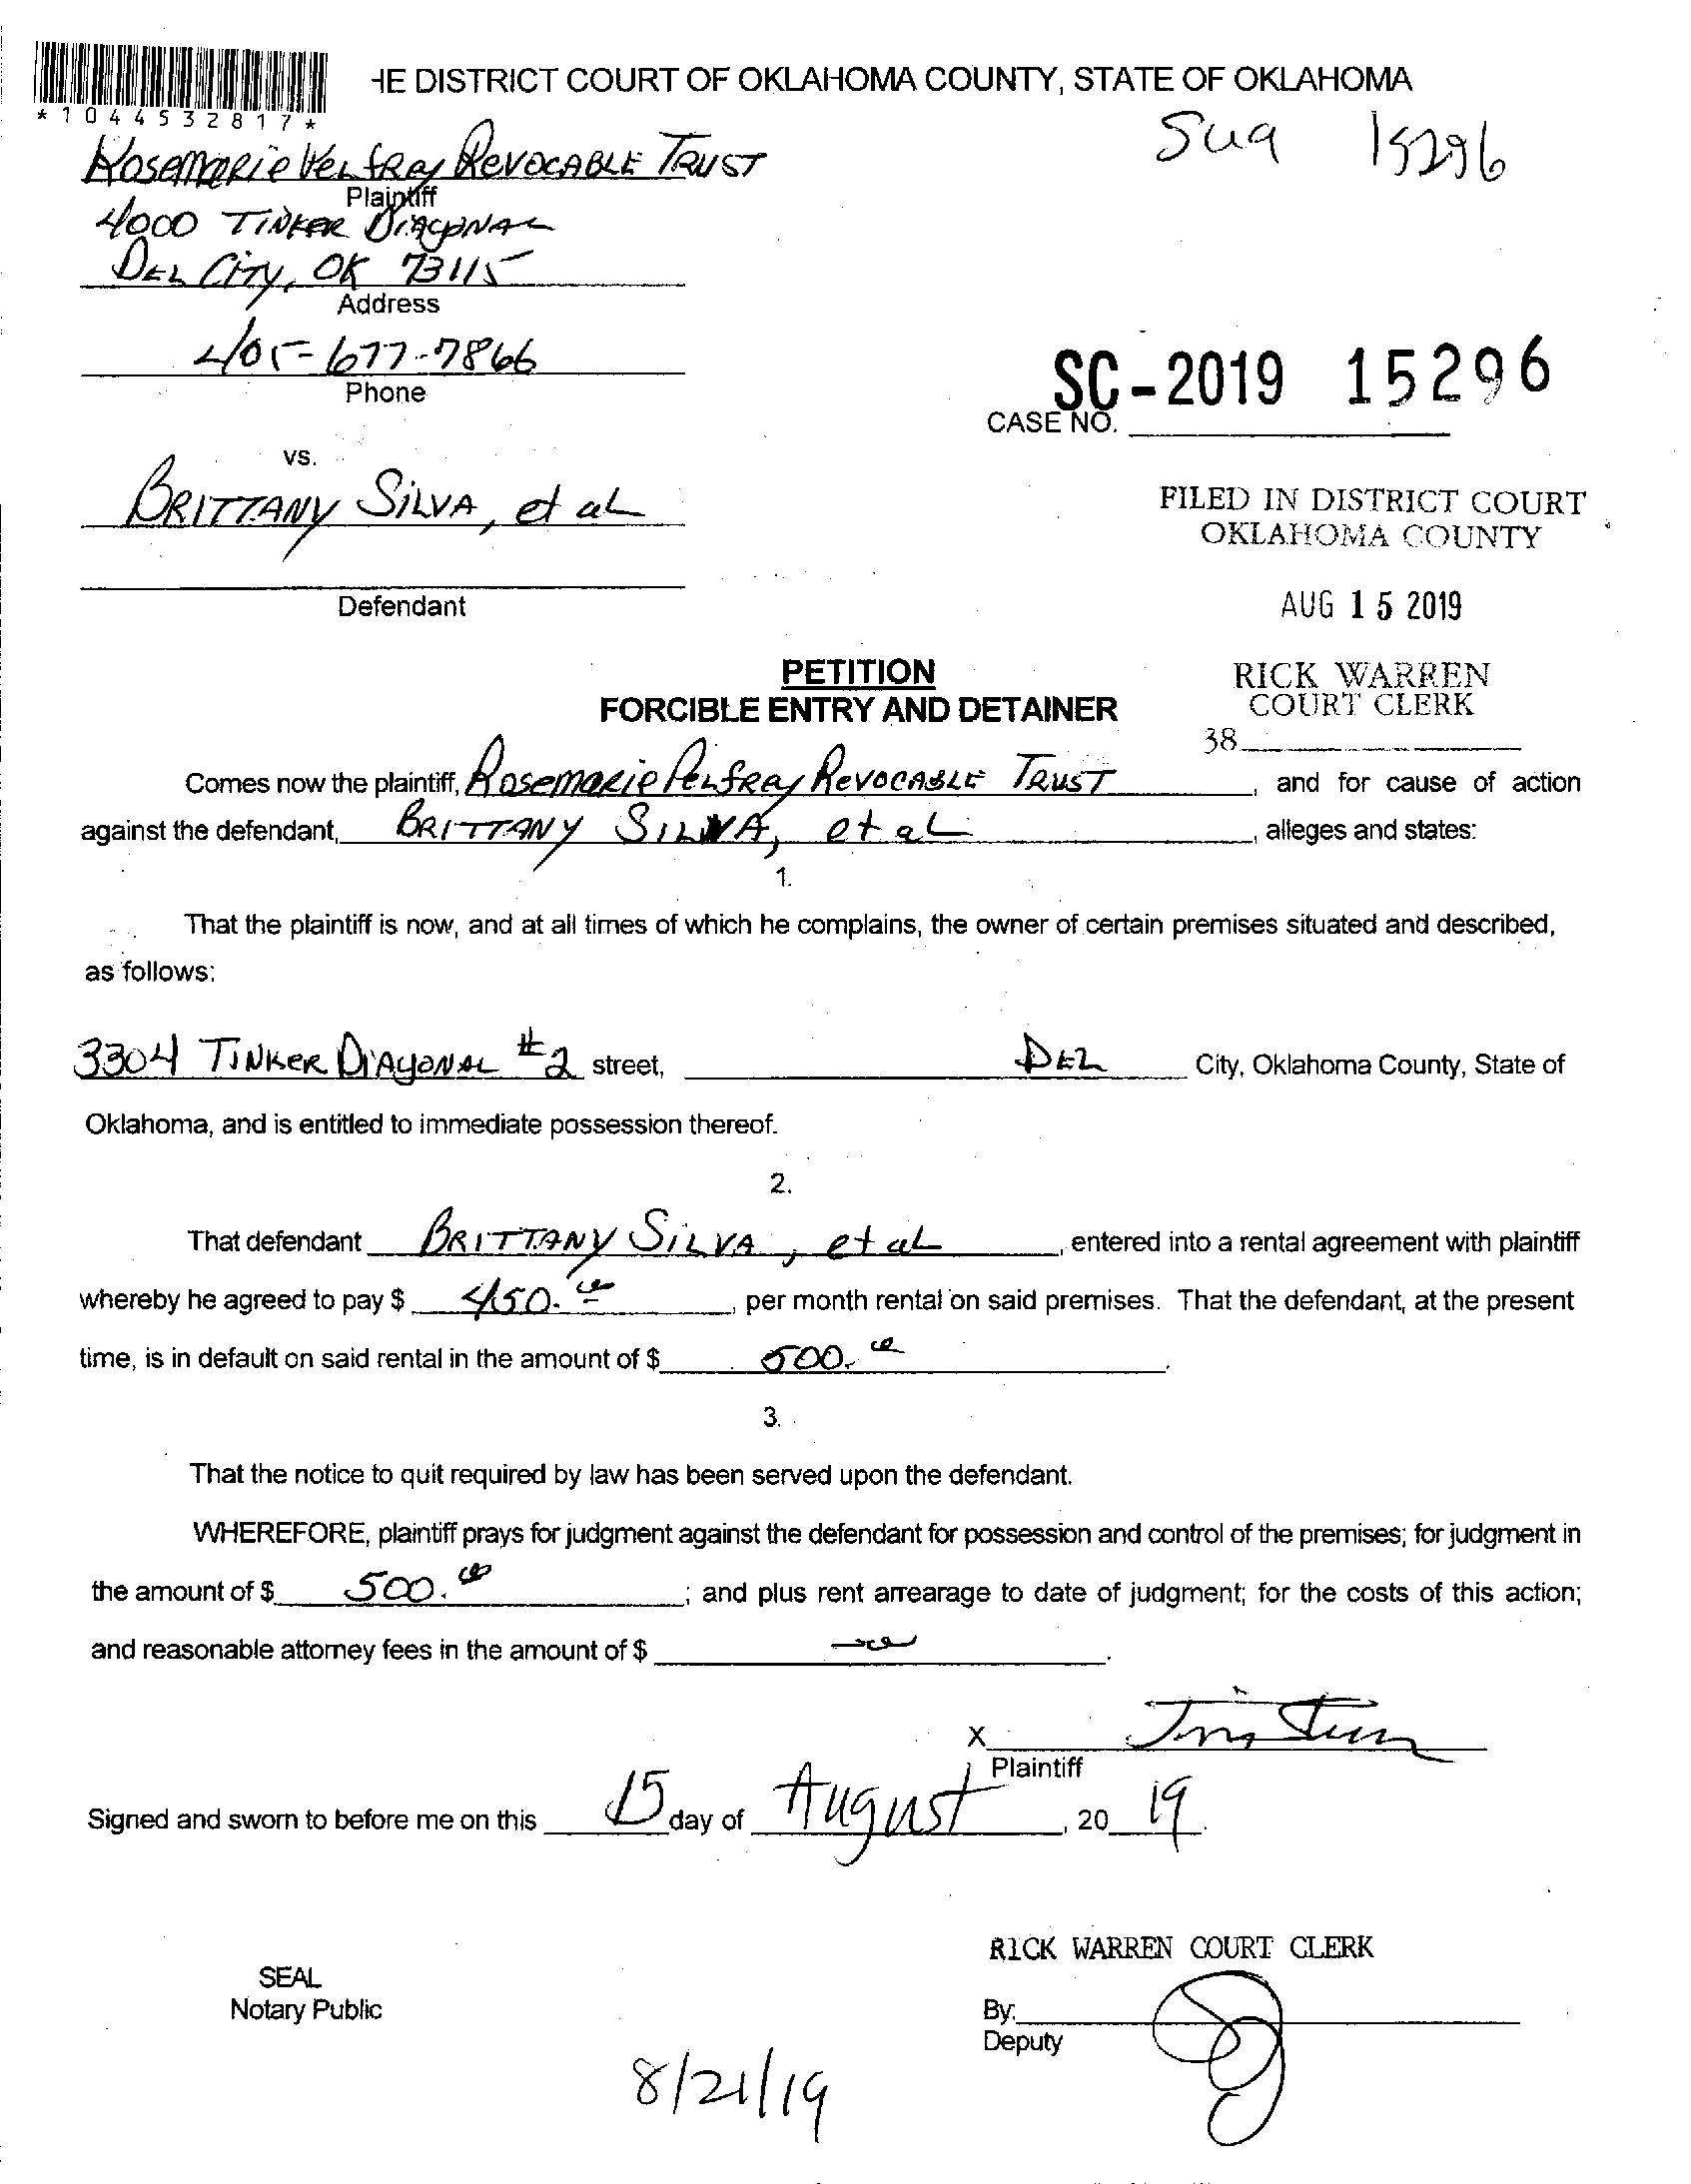 HE DISTRICT COURT OF OKLAHOMA COUNTY, STATE OF OKLAHOMA
*1044532817*
15296
Rosemarie Pelfrey Revocable Trust
Plaintiff
4000 Tinker Diagonal
Del City, OK 73115
Address
405-677-7866
Phone
SC-2019 15296
CASE NO.
vs.
Brittany Silva, et al
FILED IN DISTRICT COURT
OKLAHOMA COUNTY
Defendant
AUG 15 2019
PETITION
FORCIBLE ENTRY AND DETAINER
RICK WARREN
COURT CLERK
38
Comes now the plaintiff, Rosemarie Pelfrey Revocable Trust, and for cause of action
against the defendant, Brittany Silva, et al, alleges and states:
1.
That the plaintiff is now, and at all times of which he complains, the owner of certain premises situated and described,
as follows:
3304 Tinker Diagonal #2 street, Del City, Oklahoma County, State of
Oklahoma, and is entitled to immediate possession thereof.
2.
That defendant Brittany Silva, et al, entered into a rental agreement with plaintiff
whereby he agreed to pay $ 450.00, per month rental on said premises. That the defendant, at the present
time, is in default on said rental in the amount of $ 500.00.
3.
That the notice to quit required by law has been served upon the defendant.
WHEREFORE, plaintiff prays for judgment against the defendant for possession and control of the premises; for judgment in
the amount of $ 500.00; and plus rent arrearage to date of judgment; for the costs of this action;
and reasonable attorney fees in the amount of $
X
Plaintiff
Signed and sworn to before me on this 15 day of August, 2019.
RICK WARREN COURT CLERK
SEAL
Notary Public
By:
Deputy
8/21/19